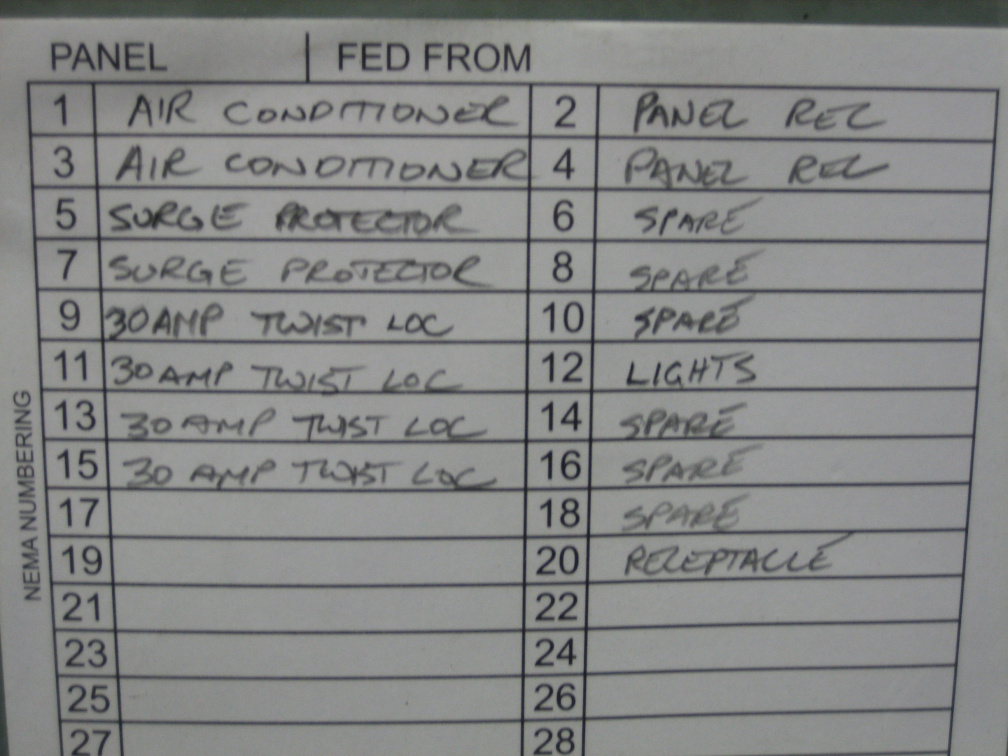 PANEL | FED FROM
1 AIR CONDITIONER 2 PANEL REC
3 AIR CONDITIONER 4 PANEL REC
5 SURGE PROTECTOR 6 SPARE
7 SURGE PROTECTOR 8 SPARE
9 30AMP TWIST LOC 10 SPARE
11 30AMP TWIST LOC 12 LIGHTS
13 30 AMP TWIST LOC 14 SPARE
15 30 AMP TWIST LOC 16 SPARE
17 18 SPARE
19 20 RECEPTACLE
21 22
23 24
25 26
27 28
NEMA NUMBERING